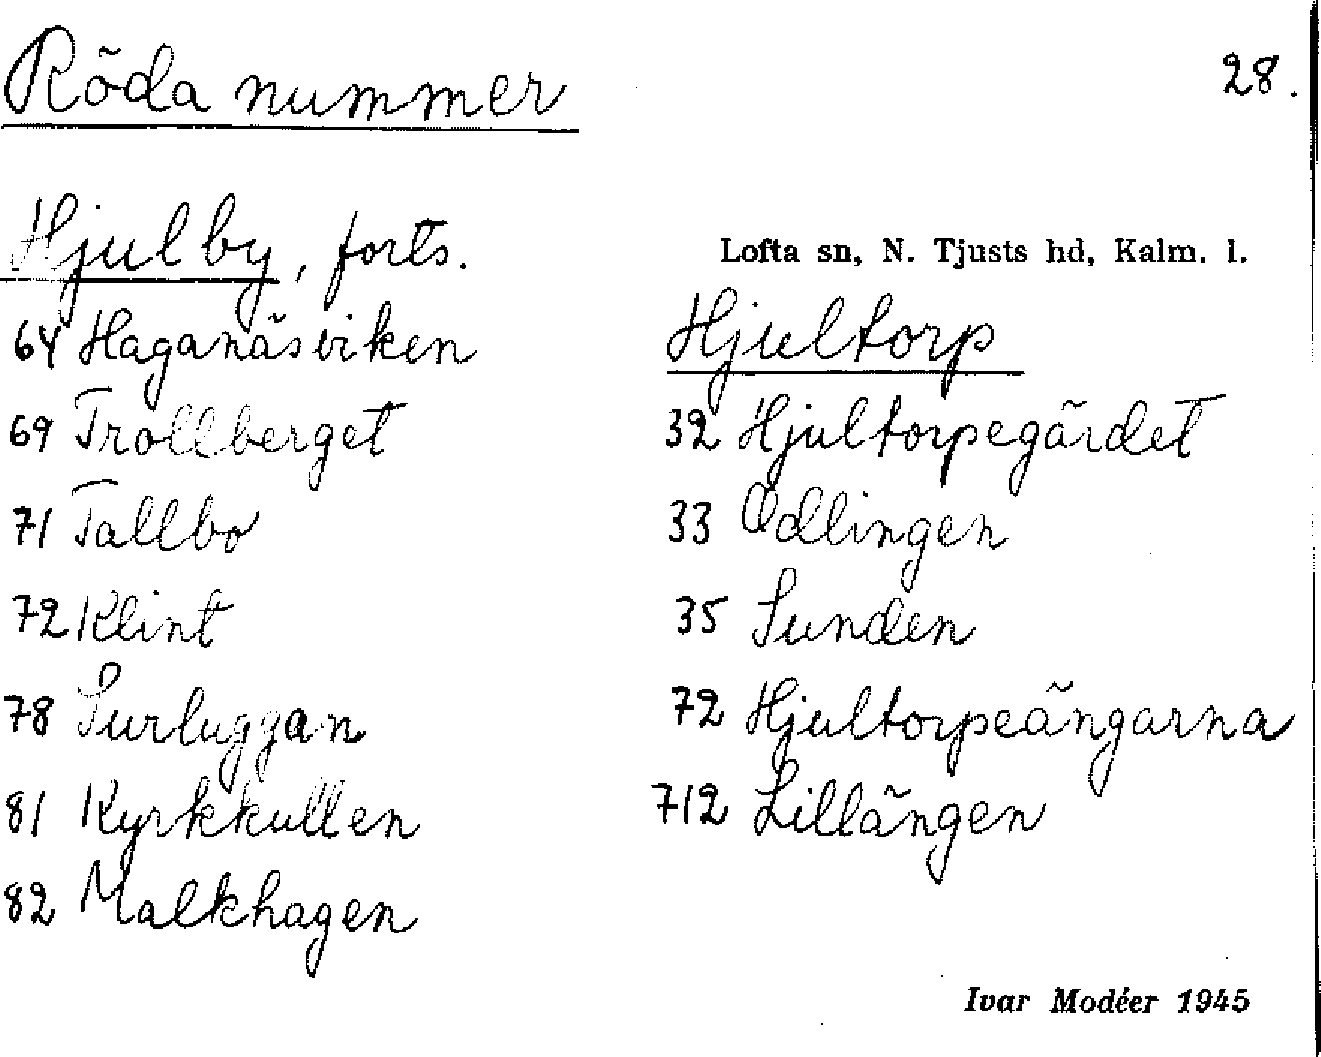 Röda nummer
28.
Hjulby, forts.
64 Haganäsviken
69 Trollberget
71 Tallbo
72 Klint
78 Surluggan
81 Kyrkkullen
82 Malkhagen
Lofta sn, N. Tjusts hd, Kalm. l.
Hjultorp
32 Hjultorpegärdet
33 Odlingen
35 Sunden
72 Hjultorpeängarna
712 Lillängen
Ivar Modéer 1945